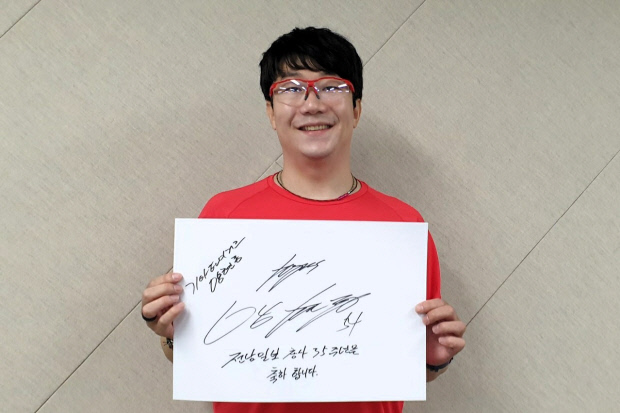 기아타이거즈
양현종
54
전남일보 창사 35주년을
축하 합니다.